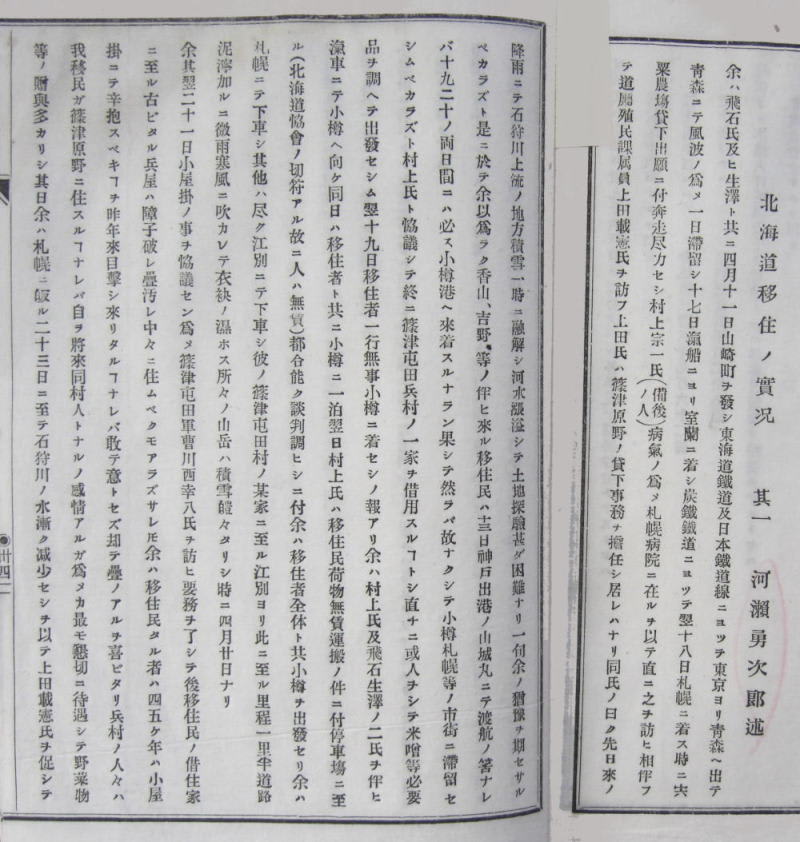 北海道移住ノ實况　其一　河瀨勇次郎述
余ハ飛石氏及ヒ生澤ト共ニ四月十一日山崎町ヲ發シ東海道鐵道及日本鐵道線ニヨツテ東京ヨリ青森ヘ出テ
青森ニテ風波ノ爲メ一日滯留シ十七日瀛船ニヨリ室蘭ニ着シ炭鐵鐵道ニヨツテ翌十八日札幌ニ着ス時ニ宍
粟農塲貸下出願ニ付奔走尽力セシ村上宗一氏(備後ノ人)病氣ノ爲メ札幌病院ニ在ルヲ以テ直ニ之ヲ訪ヒ相伴フ
テ道廳殖民課属員上田載憲氏ヲ訪フ上田氏ハ篠津原野ノ貸下事務ヲ擔任シ居レハナリ同氏ノ曰ク先日來ノ
降雨ニテ石狩川上流ノ地方積雪一時ニ融解シ河水漲溢シテ土地探驗甚ダ困難ナリ一旬余ノ猶豫ヲ期セサル
ベカラズト是ニ於テ余以爲ラク香山、吉野、等ノ伴ヒ來ル移住民ハ十三日神戸出港ノ山城丸ニテ渡航ノ筈ナレ
バ十九二十ノ両日間ニハ必ス小樽港ヘ來着スルナラン果シテ然ラバ故ナクシテ小樽札幌等ノ市街ニ滯留セ
シムベカラズト村上氏ト協議シテ終ニ篠津屯田兵村ノ一家ヲ借用スルヿトシ直チニ或人ヲシテ米噌等必要
品ヲ調ヘテ出發セシム翌十九日移住者一行無事小樽ニ着セシノ報アリ余ハ村上氏及飛石生澤ノ二氏ヲ伴ヒ
瀛車ニテ小樽ヘ向ケ同日ハ移住者ト共ニ小樽ニ一泊翌日村上氏ハ移住民荷物無賃運搬ノ件ニ付停車塲ニ至
ル(北海道協會ノ切符アル故ニ人ハ無賃)都合能ク談判調ヒシニ付余ハ移住者全体ト共小樽ヲ出發セリ余ハ
札幌ニテ下車シ其他ハ尽ク江別ニテ下車シ彼ノ篠津屯田村ノ某家ニ至ル江別ヨリ此ニ至ル里程一里半道路
泥濘加ルニ微雨寒風ニ吹カレテ衣袂ノ濕ホス所々ノ山岳ハ積雪皚々タリシ時ニ四月廿日ナリ
余其翌二十一日小屋掛ノ事ヲ協議セン爲メ篠津屯田軍曹川西幸八氏ヲ訪ヒ要務ヲ了シテ後移住民ノ借住家
ニ至ル古ビタル兵屋ハ障子破レ疊汚レ中々ニ住ムベクモアラズサレモ余ハ移住民タル者ハ四五ケ年ハ小屋
掛ニテ辛抱スベキヿヲ昨年來目擊シ來リタルヿナレバ敢テ意トセズ却テ疊ノアルヲ喜ビタリ兵村ノ人々ハ
我移民ガ篠津原野ニ住スルヿナレバ自ヲ將來同村人トナルノ感情アルガ爲メカ最モ懇切ニ待遇シテ野菜物
等ノ贈與多カリシ其日余ハ札幌ニ皈ル二十三日ニ至テ石狩川ノ水漸ク減少セシヲ以テ上田載憲氏ヲ促シテ
卅四